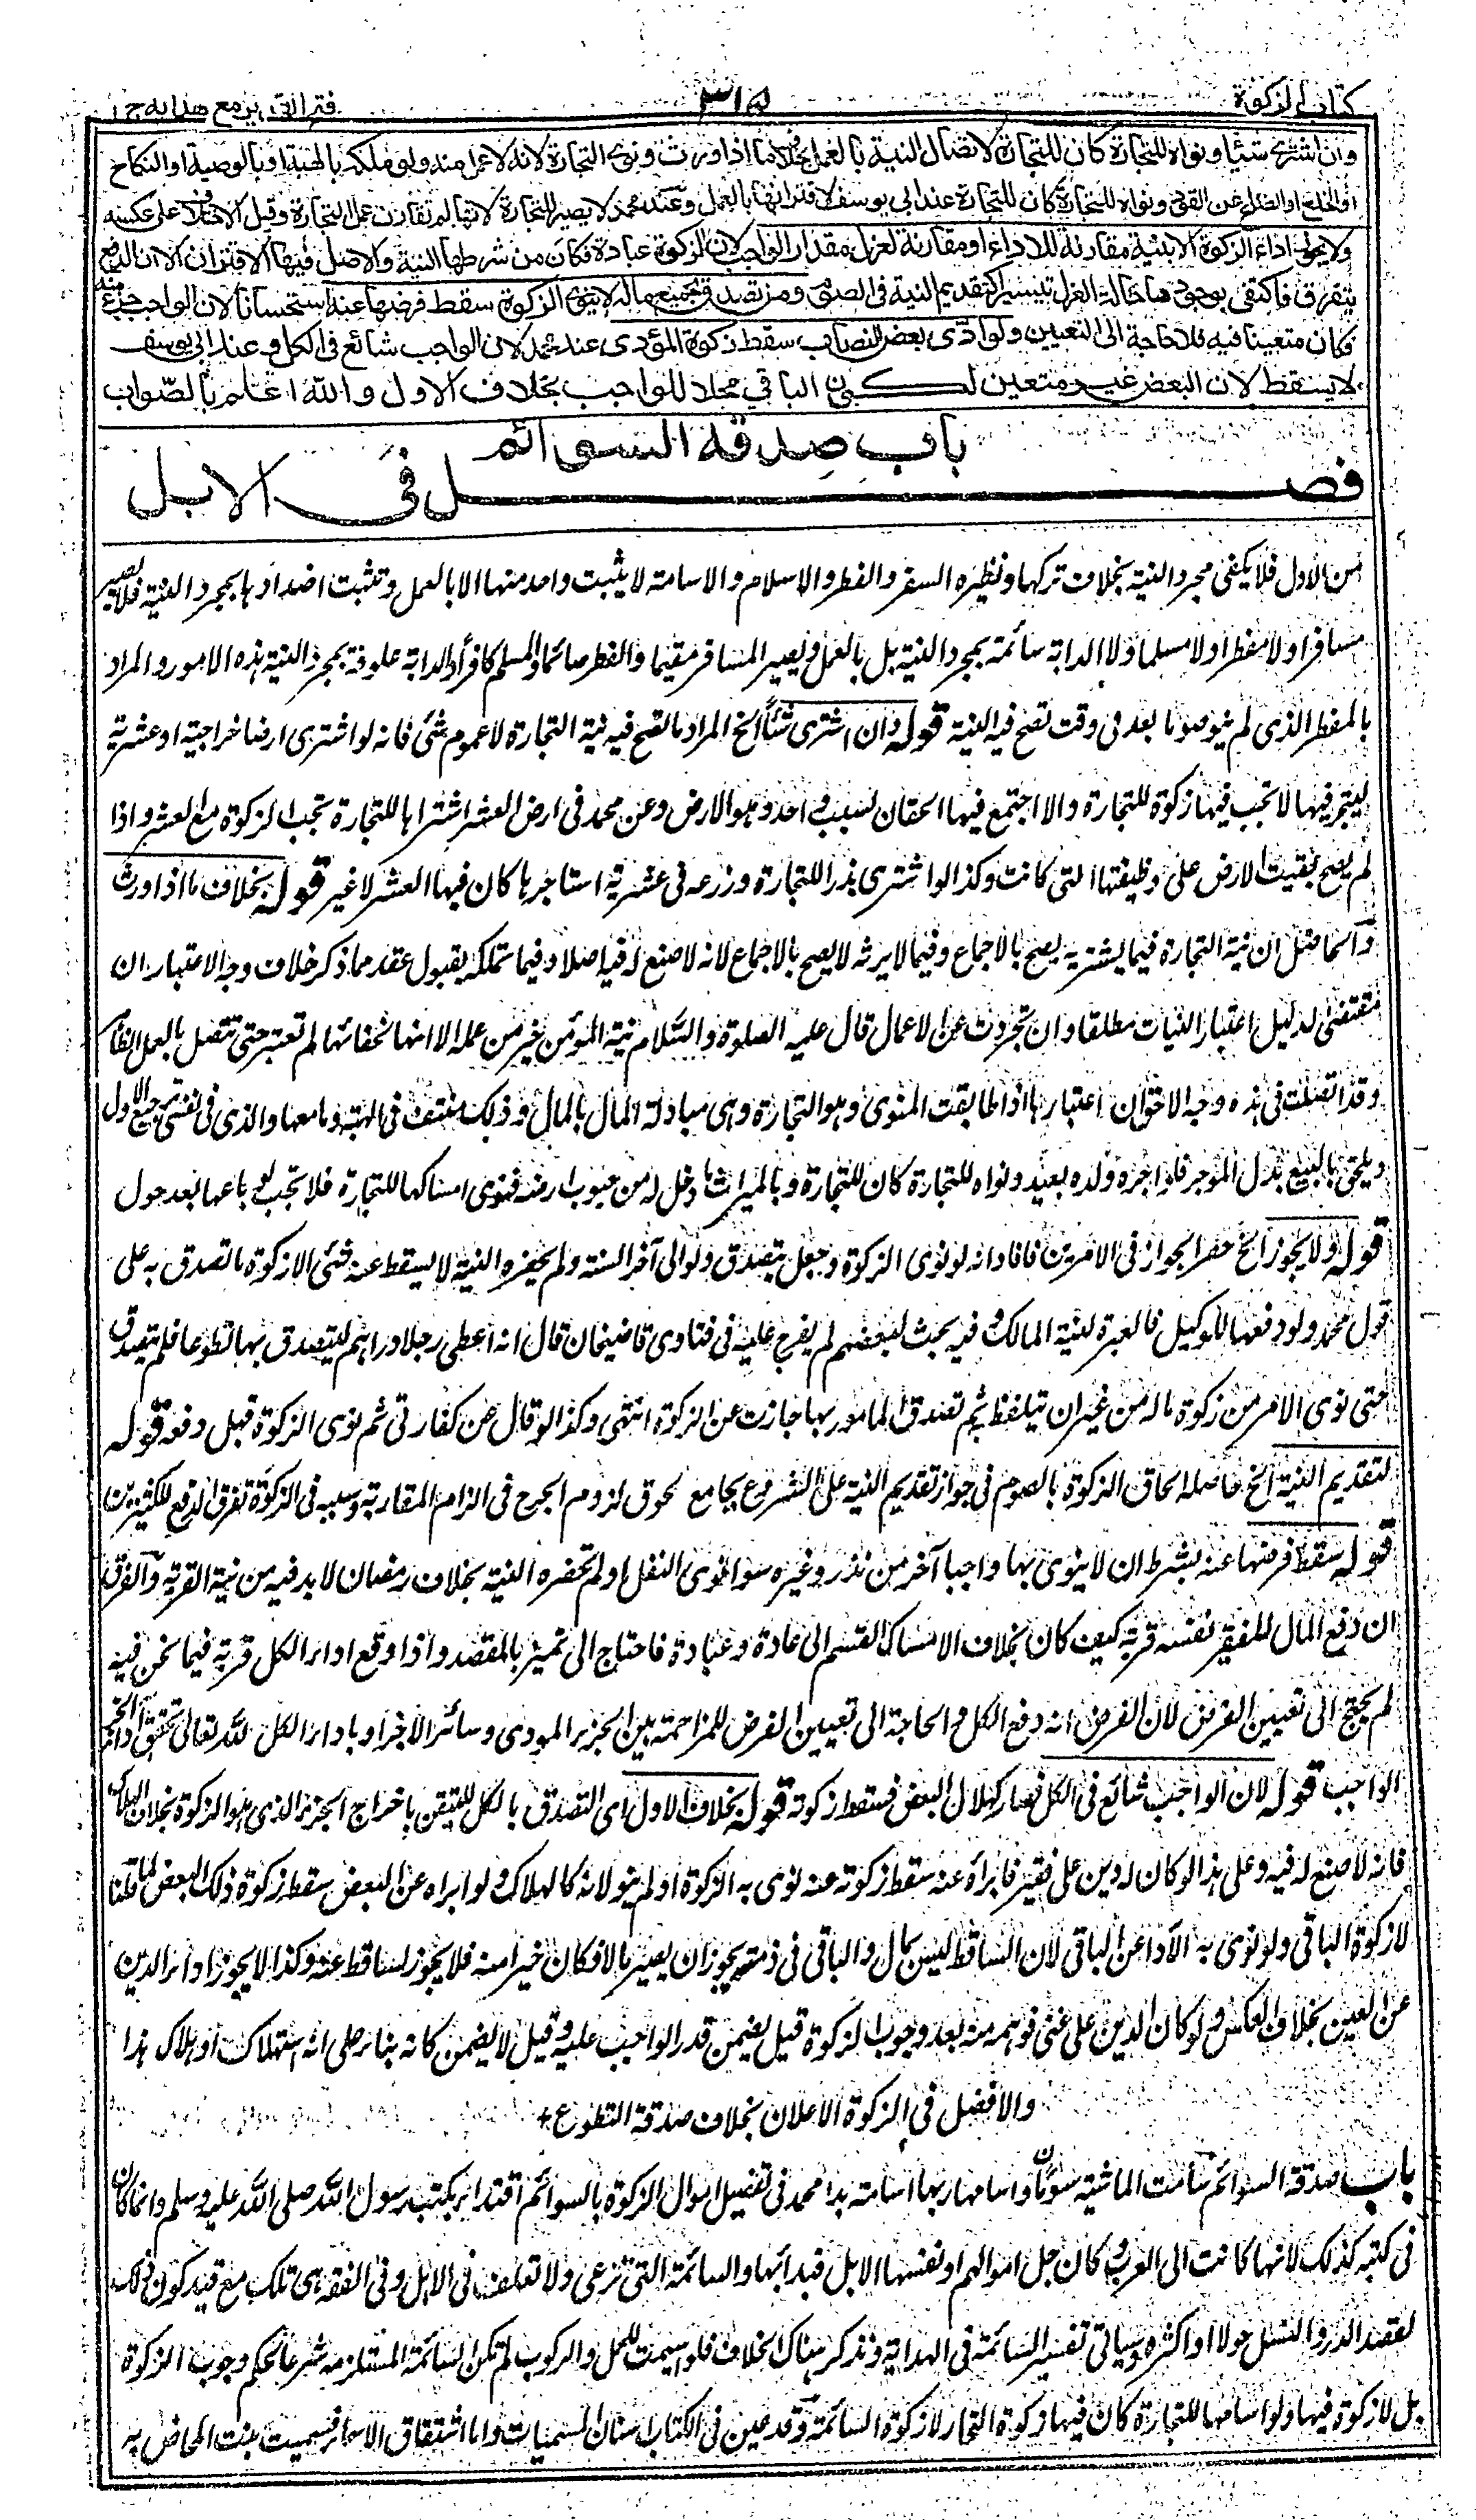 كتاب الزكوة
٣١٥
فتح القدير مع هدايه ج ١
وان اشترى شيئا ونواه للتجارة كان للتجارة لاتصال النية بالعمل بخلاف ما اذا ورث ونوى التجارة لانه لا عمل منه ولو ملكه بالهبة او بالوصية او النكاح
او الخلع او الصلح عن القود ونواه للتجارة كان للتجارة عند ابي يوسف لاقترانها بالعمل وعند محمد لا يصير للتجارة لانها لم تقارن عمل التجارة وقيل الاختلاف على عكسه
ولا يجوز اداء الزكوة الا بنية مقارنة للاداء او مقارنة لعزل مقدار الواجب لان الزكوة عبادة فكان من شرطها النية والاصل فيها الاقتران الا ان الدفع
يتفرق فاكتفى بوجودها حالة العزل تيسيرا كتقديم النية في الصوم ومن تصدق بجميع ماله لا ينوي الزكوة سقط فرضها عنه استحسانا لان الواجب جزء منه
فكان متعينا فيه فلا حاجة الى التعيين ولو ادى بعض النصاب سقط زكوة المؤدى عند محمد لان الواجب شائع في الكل وعند ابي يوسف
لا يسقط لان البعض غير متعين لكون الباقي محلا للواجب بخلاف الاول والله اعلم بالصواب
باب صدقة السوائم
فصل في الابل
من الاول فلا يكفى مجرد النية بخلاف تركها ونظيره السفر والفطر والاسلام والاسامة لا يثبت واحد منها الا بالعمل وتثبت اضدادها بمجرد النية فلا يصير
مسافرا ولا مفطرا ولا مسلما ولا الدابة سائمة بمجرد النية بل بالعمل ويصير المسافر مقيما والمفطر صائما والمسلم كافرا والدابة علوفة بمجرد النية هذه الامور والمراد
بالمفطر الذى لم ينو صوما بعد فى وقت تصح فيه النية قوله وان اشترى شيئا الخ المراد ما تصح فيه نية التجارة لا عموم شئ فانه لو اشترى ارضا خراجية او عشرية
ليتجر فيها لا تجب فيها زكوة للتجارة والا اجتمع فيها الحقان بسبب واحد وهو الارض وعن محمد فى ارض العشر اشتراها للتجارة تجب الزكوة مع العشر واذا
لم يصح بقيت الارض على وظيفتها التى كانت وكذا لو اشترى بذرا للتجارة وزرعه فى عشرية استاجرها كان فيها العشر لا غير قوله بخلاف ما اذا ورث
والحاصل ان نية التجارة فيما يشتريه يصح بالاجماع وفيما لا يرثه لا يصح بالاجماع لانه لا صنع له فيه اصلا وفيما تملكه بقبول عقد مما ذكر خلاف وجه الاعتبار ان
مقتضى الدليل اعتبار النيات مطلقا وان تجردت عن الاعمال قال عليه الصلوة والسلام نية المؤمن خير من عمله الا انها لخفائها لم تعتبر حتى تتصل بالعمل الظاهر
وقد اتصلت فى هذه وجه الاخر ان اعتبارها اذا طابقت المنوى وهو التجارة وهى مبادلة المال بالمال وذلك منتف فى الهبة وما معها والذى فى نفسى ترجيح الاول
ويلحق بالبيع بدل المؤجر فلو اجره ولده بعبد ونواه للتجارة كان للتجارة وبالميراث ما دخل له من حبوب ارضه فنوى امساكها للتجارة فلا تجب لو باعها بعد حول
قوله ولا يجوز الخ حصر الجواز فى الامرين فافاد انه لو نوى الزكوة وجعل يتصدق ولو الى آخر السنة ولم يحضره النية لا يسقط عنه شئ الا زكوة ما تصدق به على
قول محمد ولو دفعها للوكيل فالعبرة لنية المالك وفيه بحث لبعضهم لم يعرج عليه فى فتاوى قاضيخان قال انه اعطى رجلا دراهم ليتصدق بها تطوعا فلم يتصدق
حتى نوى الامر من زكوة ماله من غير ان يتلفظ به ثم تصدق المامور بها جازت عن الزكوة انتهى وكذا لو قال عن كفارتى ثم نوى الزكوة قبل دفعه قوله
لتقديم النية الخ حاصله الحاق الزكوة بالصوم فى جواز تقديم النية على الشروع بجامع لحوق لزوم الحرج فى الزام المقارنة وسببه فى الزكوة تفرق الدفع للكثيرين
قوله سقط فرضها عنه بشرط ان لا ينوى بها واجبا آخر من نذر وغيره سواء نوى النفل او لم تحضره النية بخلاف رمضان لا بد فيه من نية القربة والفرق
ان دفع المال للفقير نفسه قربة كيف كان بخلاف الامساك انقسم الى عادة وعبادة فاحتاج الى تمييز بالقصد واذا وقع اداء الكل قربة فيما نحن فيه
لم يحتج الى تعيين الفرض لان الفرض انه دفع الكل والحاجة الى تعيين الفرض للمزاحمة بين الجزء المودى وسائر الاجزاء وباداء الكل لله تعالى تحقق اداء الجزء
الواجب قوله لان الواجب شائع فى الكل فصار كهلاك البعض فسقط زكوته قوله بخلاف الاول اى التصدق بالكل للتيقن باخراج الجزء الذى هو الزكوة بخلاف الهلاك
فانه لا صنع له فيه وعلى هذا لو كان له دين على فقير فابرأه عنه سقط زكوته عنه نوى به الزكوة او لم ينو لانه كالهلاك ولو ابراه عن البعض سقط زكوة ذلك البعض لما قلنا
لا زكوة الباقى ولو نوى به الاداء عن الباقى لان الساقط ليس بمال والباقى فى ذمته يجوز ان يصير مالا فكان خيرا منه فلا يجوز الساقط عنه وكذا لا يجوز اداء الدين
عن العين بخلاف العكس ولو كان الدين على غنى فوهبه منه بعد وجوب الزكوة قيل يضمن قدر الواجب عليه وقيل لا يضمن كانه بناء على انه استهلاك او هلاك هذا
والافضل فى الزكوة الاعلان بخلاف صدقة التطوع +
باب صدقة السوائم سامت الماشية سوما واسامها ربها اسامة بدا محمد فى تفصيل اموال الزكوة بالسوائم اقتداء بكتب رسول الله صلى الله عليه وسلم وانما كان
فى كتبه كذلك لانها كانت الى العرب وكان جل اموالهم وانفسها الابل فبدا بها والسائمة التى ترعى ولا تعلف فى الاهل وفى الفقه هى تلك مع قيد كون ذلك
لقصد الدر والنسل حولا او اكثره وسياتى تفسير السائمة فى الهداية ونذكر هناك الخلاف فلو اسيمت للحمل والركوب لم تكن السائمة المستلزمة شرعا لحكم وجوب الزكوة
بل لا زكوة فيها ولو اسامها للتجارة كان فيها زكوة التجار لا زكوة السائمة وقد عين فى الكتاب اسنان المسميات واما اشتقاق الاسماء فسميت بنت المخاض به